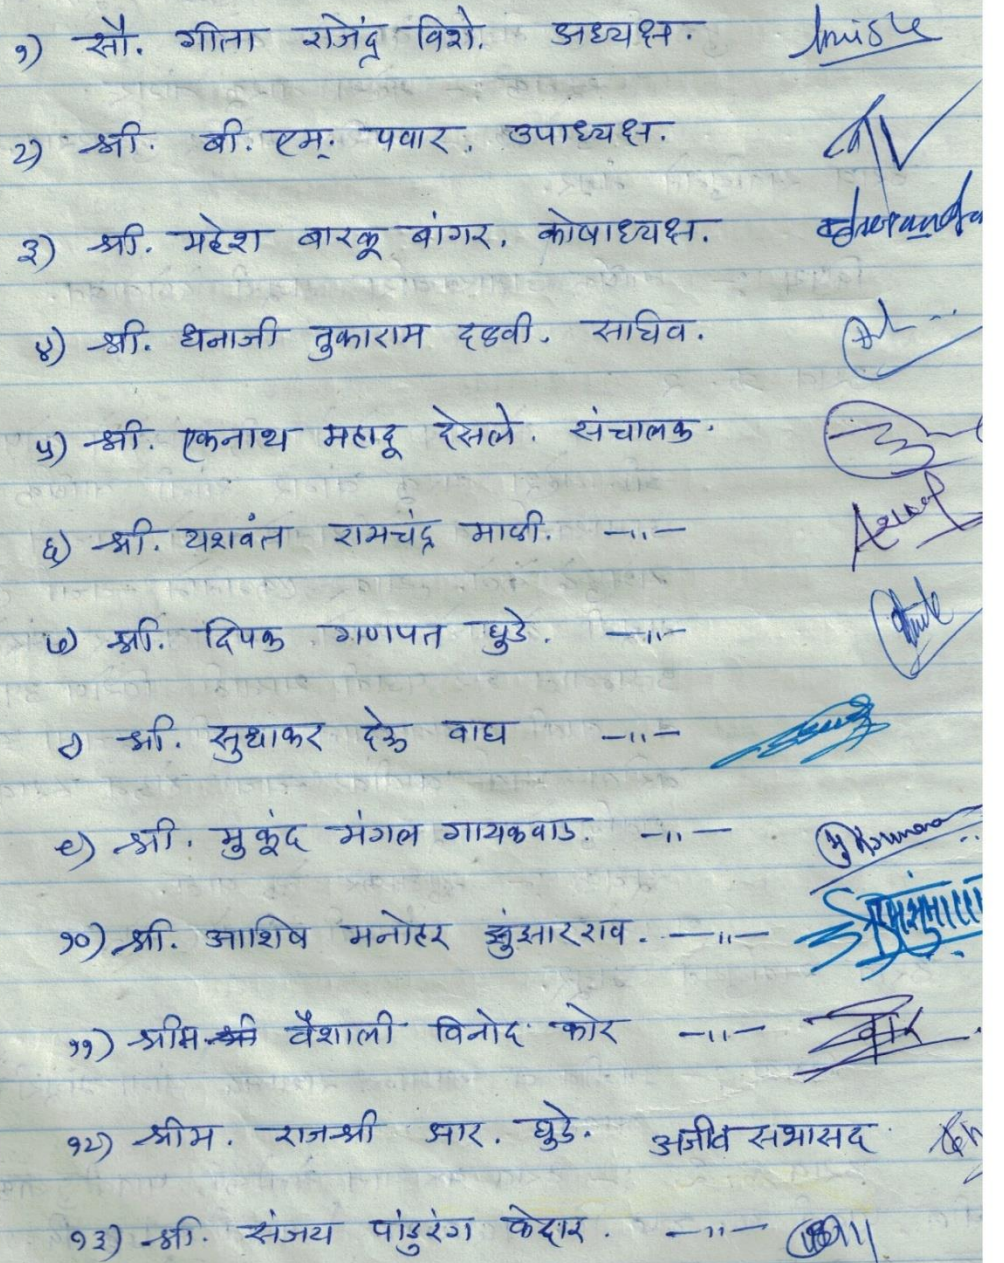 १) सौ. गीता राजेंद्र विशे. अध्यक्ष.
२) श्री. बी. एम. पवार. उपाध्यक्ष.
३) श्री. महेश बारकू बांगर. कोषाध्यक्ष.
४) श्री. धनाजी तुकाराम दळवी. सचिव.
५) श्री. एकनाथ महादू देसले. संचालक.
६) श्री. यशवंत रामचंद्र माळी. —ıı—
७) श्री. दिपक गणपत घुडे. —ıı—
८) श्री. सुधाकर देऊ वाघ —ıı—
९) श्री. मुकूंद मंगल गायकवाड. —ıı—
१०) श्री. आशिष मनोहर झुंझारराव. —ıı—
११) श्रीम. वैशाली विनोद कोर —ıı—
१२) श्रीम. राजश्री आर. घुडे. अजीव सभासद
१३) श्री. संजय पांडुरंग केदार. —ıı—